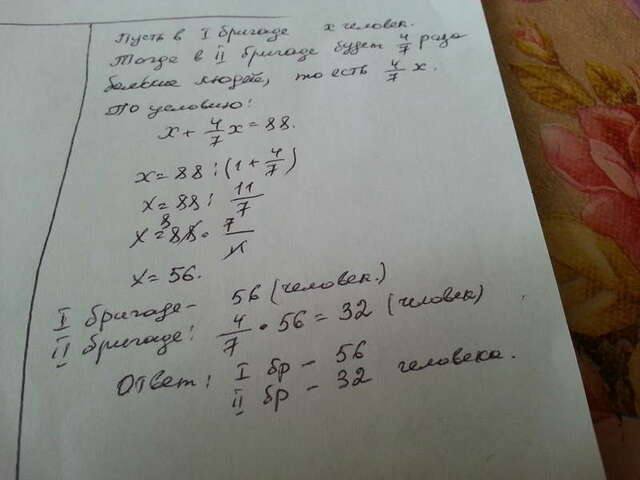 Пусть в I бригаде x человек.
Тогда в II бригаде будет 4/7 раза
больше людей, то есть 4/7 x.
По условию:
x + 4/7 x = 88.
x = 88 : (1 + 4/7)
x = 88 : 11/7
x = 88 · 7/11 8
x = 56.
I бригаде - 56 (человек.)
II бригаде: 4/7 · 56 = 32 (человек)
Ответ: I бр - 56
II бр - 32 человека.